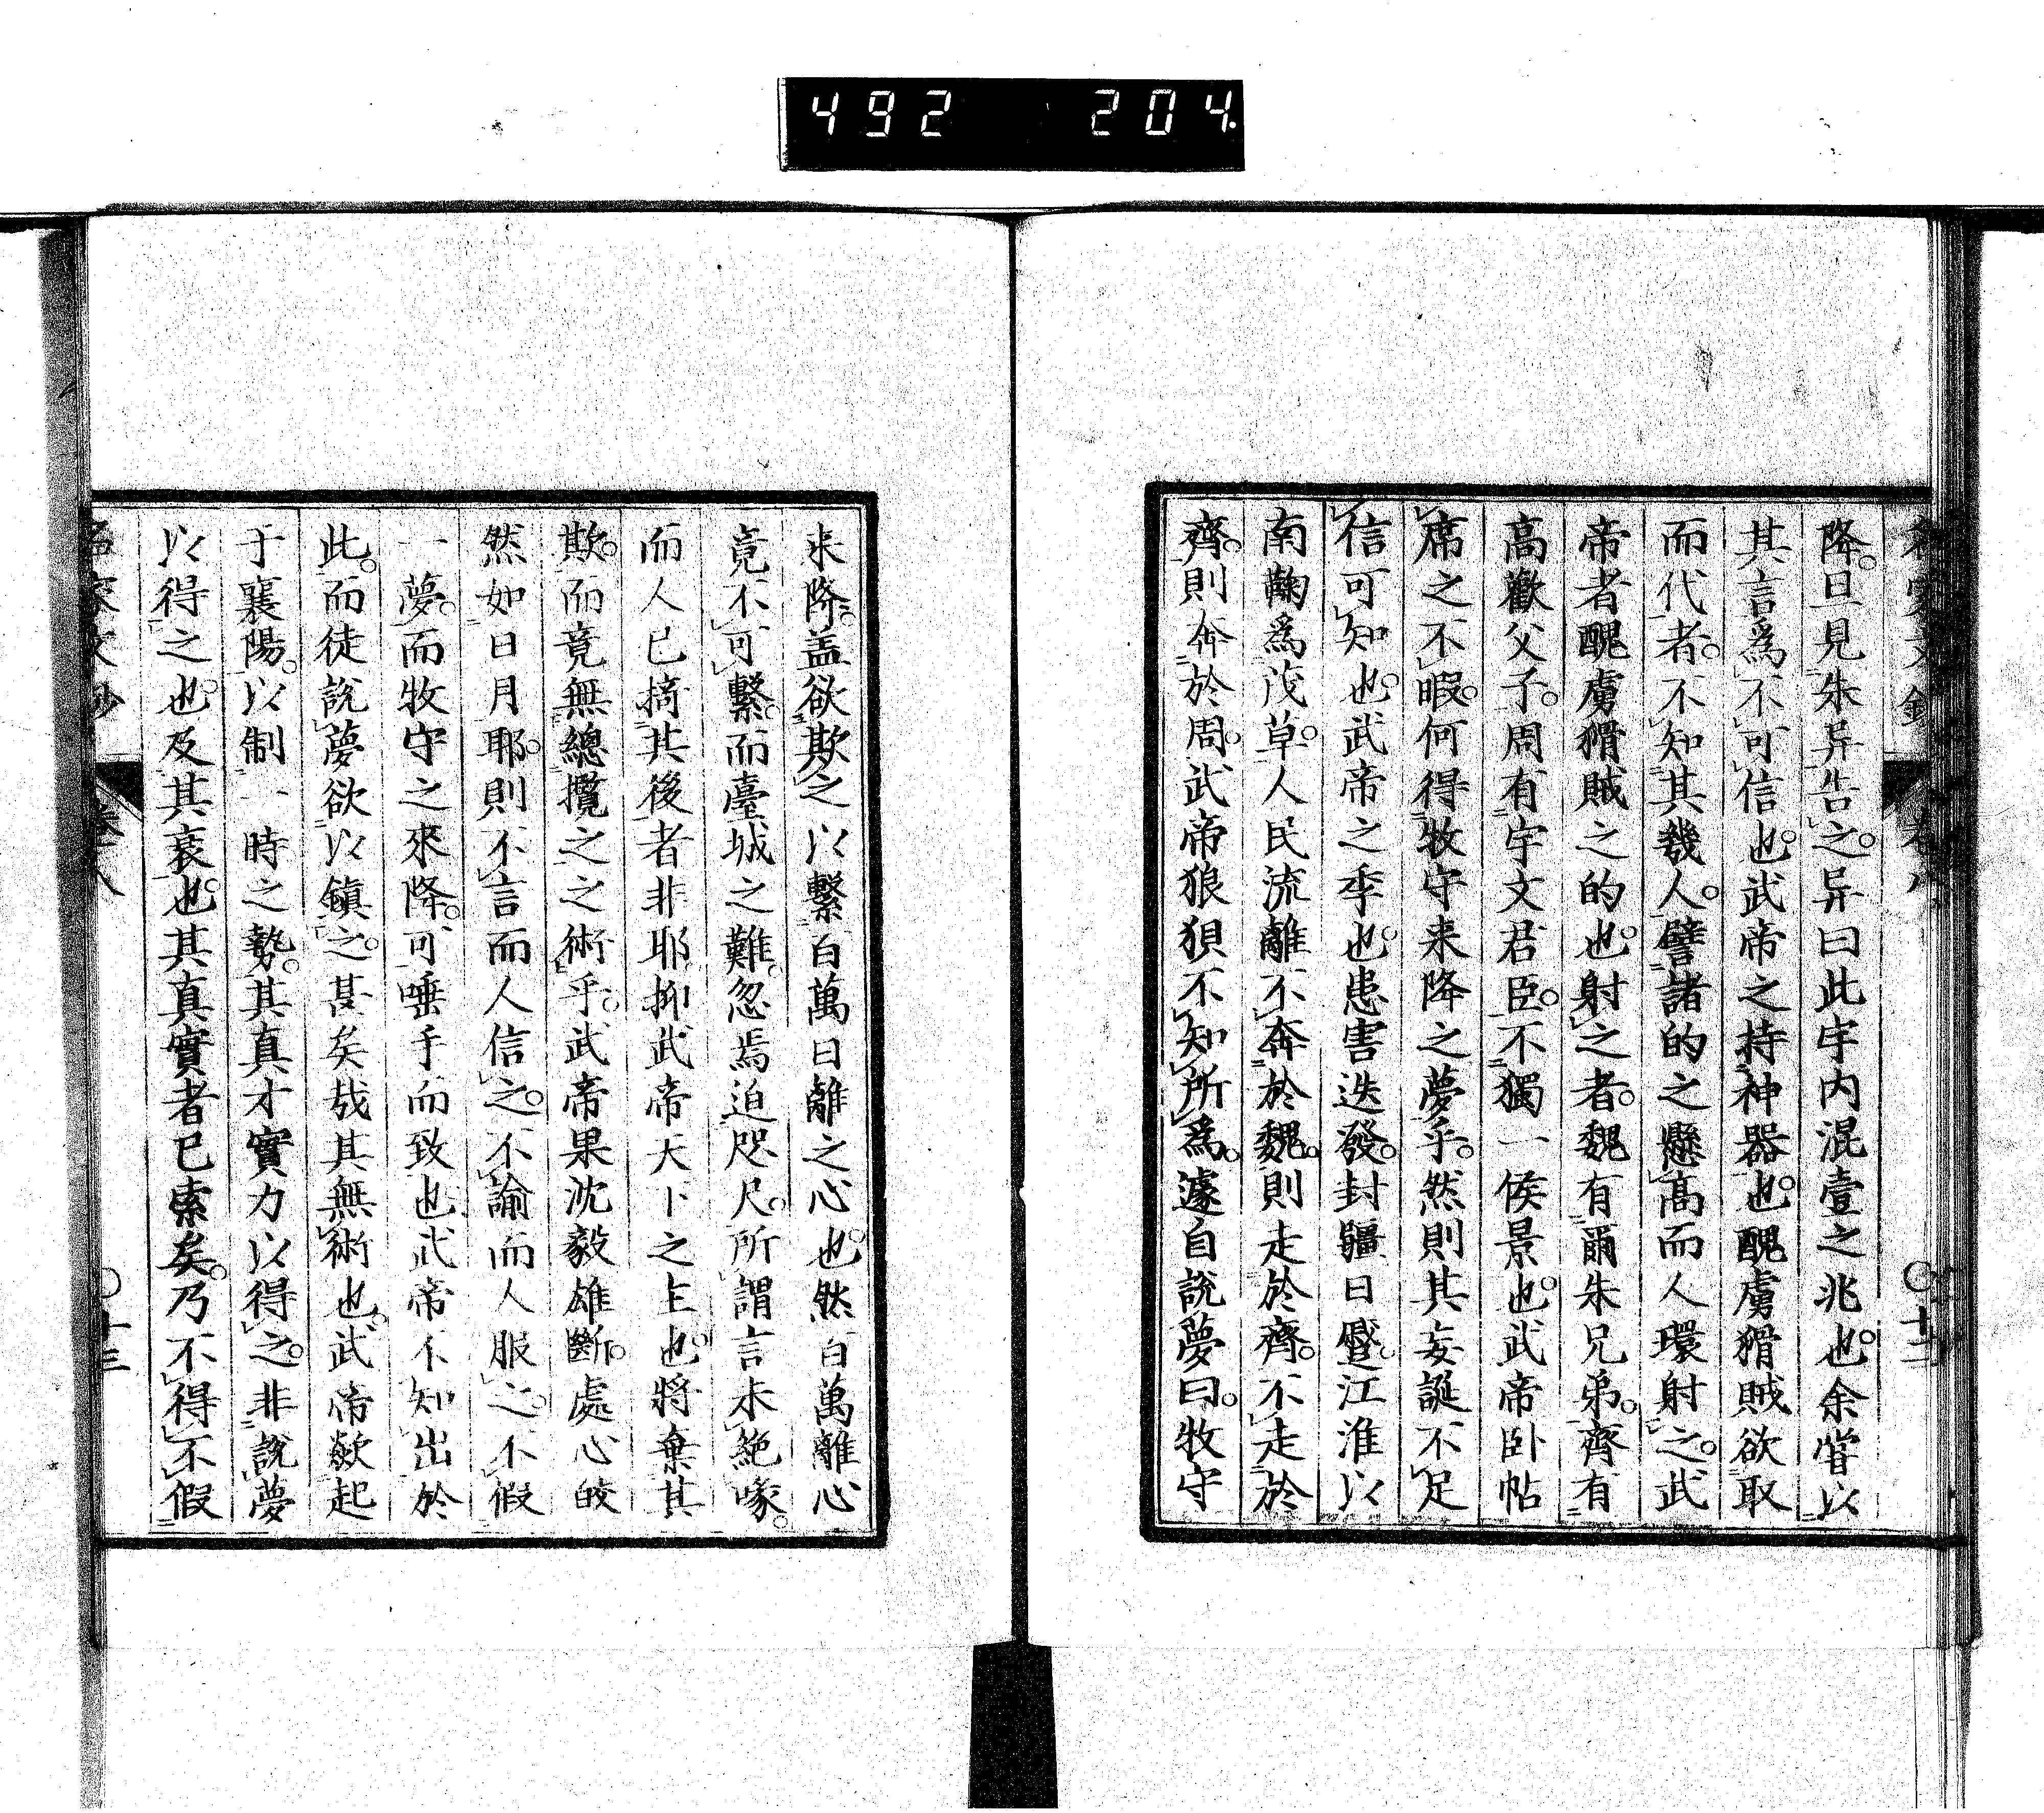 492 204
降。旦見朱异告之。异曰此宇内混壹之兆也。余嘗以
其言爲不可信也。武帝之持神器也。醜虜猾賊欲取
而代者。不知其幾人。譬諸的之懸高而人環射之。武
帝者醜虜猾賊之的也。射之者。魏有爾朱兄弟。齊有
高歡父子。周有宇文君臣。不獨一侯景也。武帝卧帖
席之不暇。何得牧守来降之夢乎。然則其妄誕不足
信可知也。武帝之季也。患害迭發。封疆日蹙。江淮以
南鞠爲茂草。人民流離不奔於魏。則走於齊。不走於
齊。則奔於周。武帝狼狽不知所爲。遽自説夢曰。牧守
来降。盖欲欺之以繫百萬日離之心也。然百萬離心
竟不可繫。而臺城之難。忽焉迫咫尺。所謂言未絶喙。
而人已掎其後者非耶抑武帝天下之主也。將棄其
欺。而竟無總攬之之術乎。武帝果沈毅雄斷。處心皎
然如日月耶。則不言而人信之。不諭而人服之。不假
一夢。而牧守之來降。可唾手而致也武帝不知出於
此。而徒説夢欲以鎮之。甚矣哉其無術也。武帝歘起
于襄陽。以制一時之勢。其真才實力以得之。非説夢
以得之也。及其衰也。其真實者已索矣。乃不得不假
卷八
十三